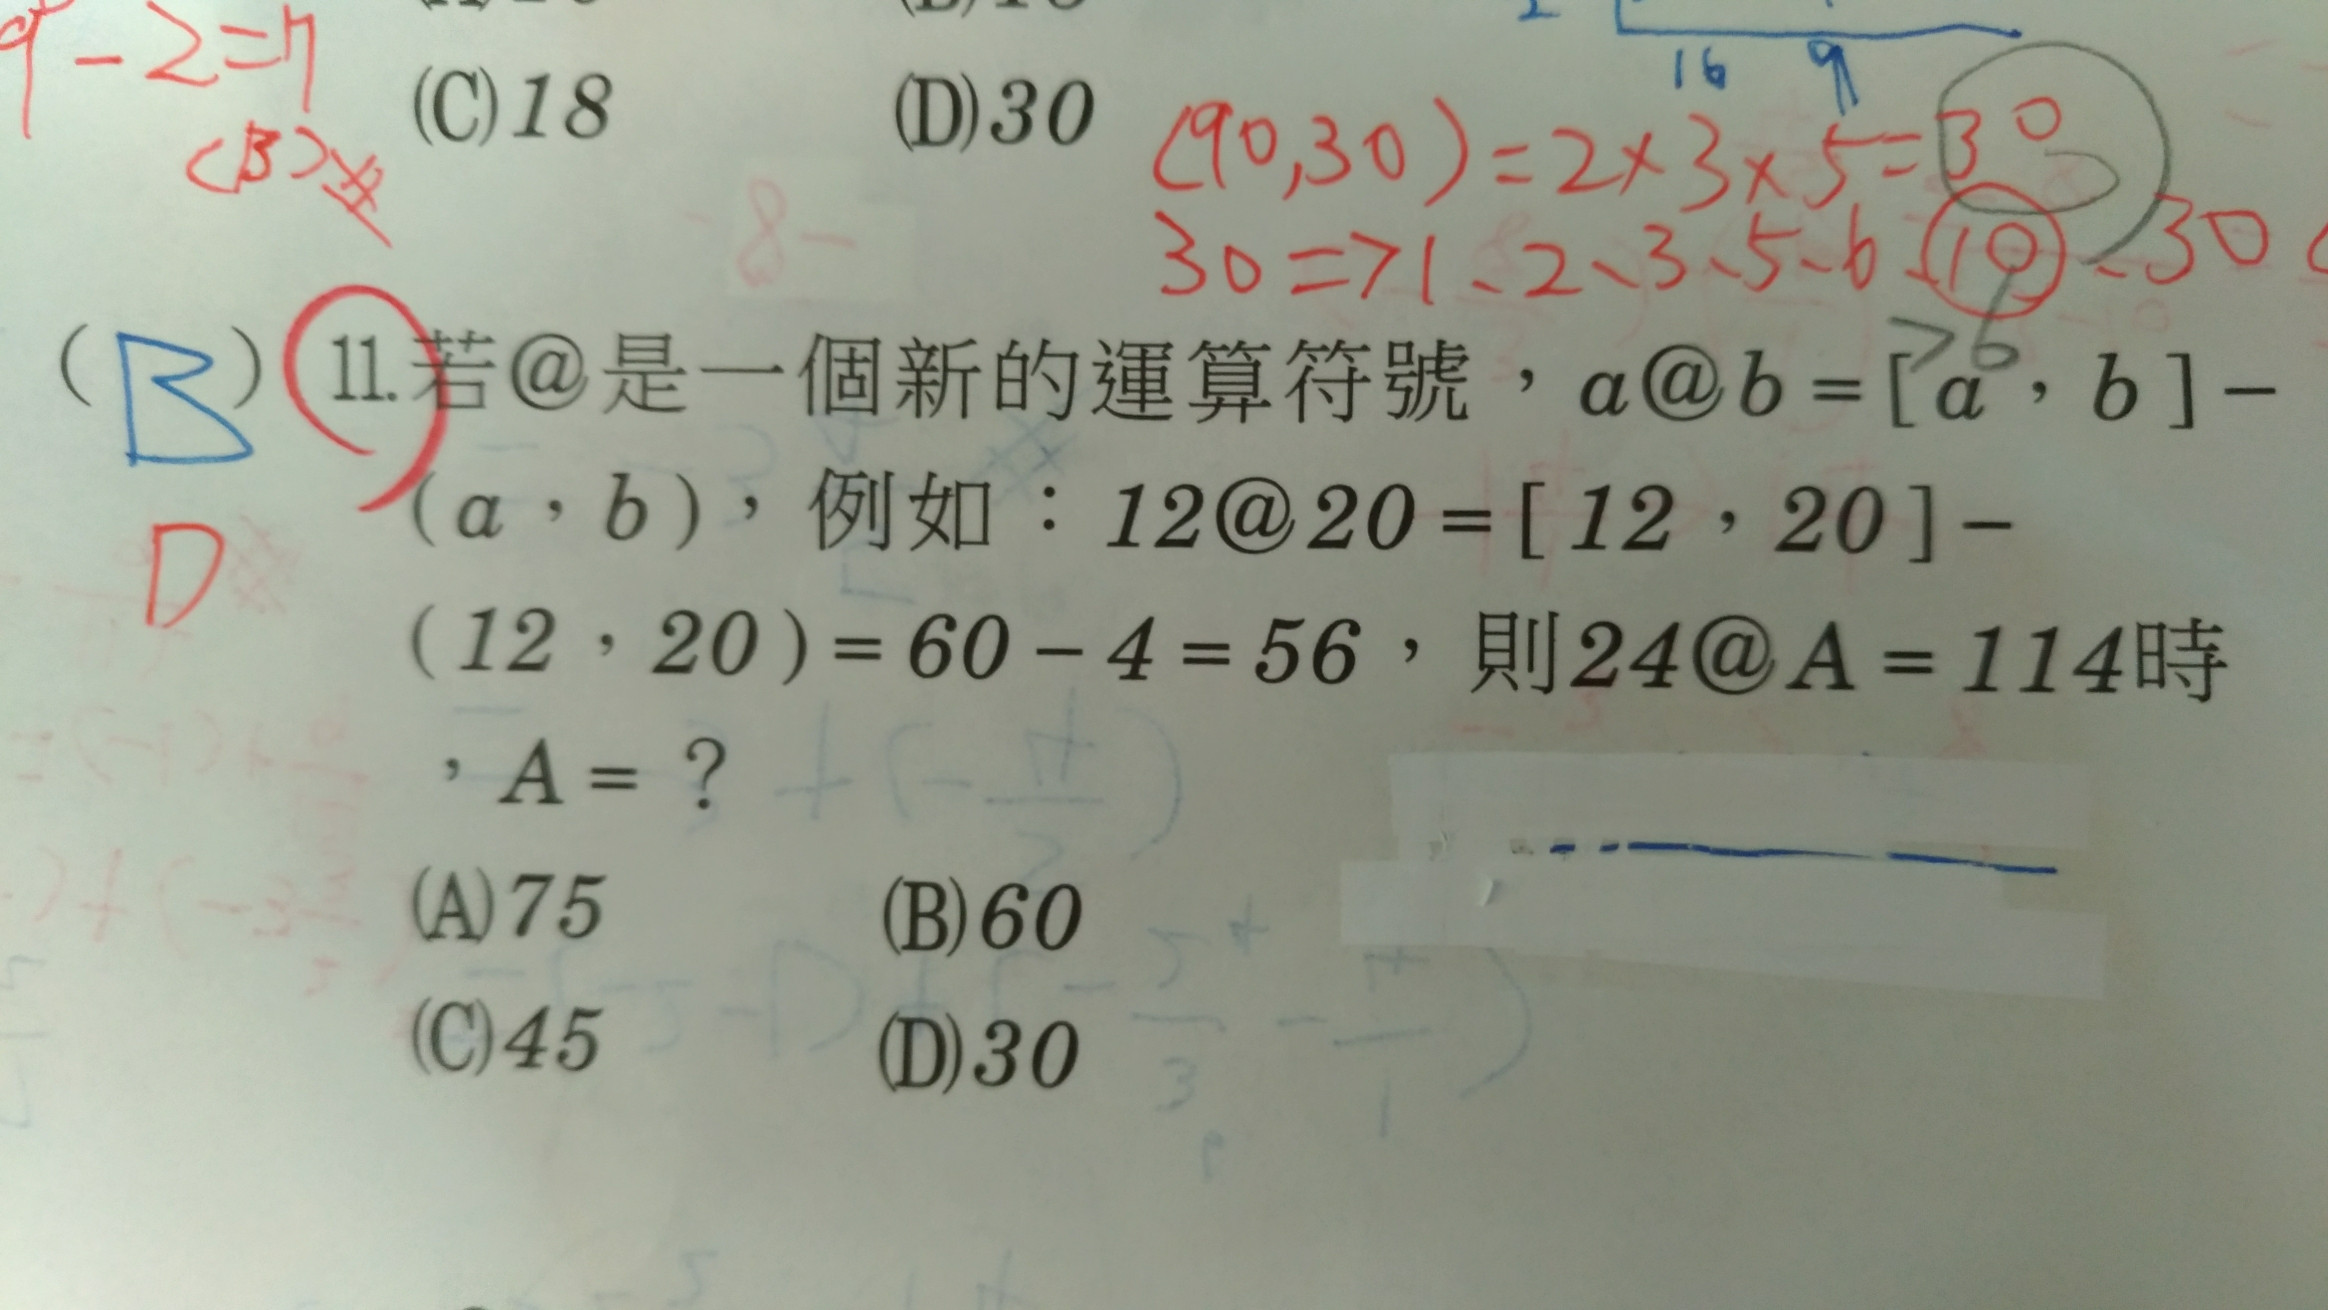 9-2=7
(C)18 (D)30
16 9
(B)
(90,30)=2×3×5=30
30=>1、2、3、5、6、10、30
>6
(B) 11.若@是一個新的運算符號，a@b=[a，b]-
(a，b)，例如：12@20=[12，20]-
D
(12，20)=60-4=56，則24@A=114時
，A=？
(A)75 (B)60
(C)45 (D)30